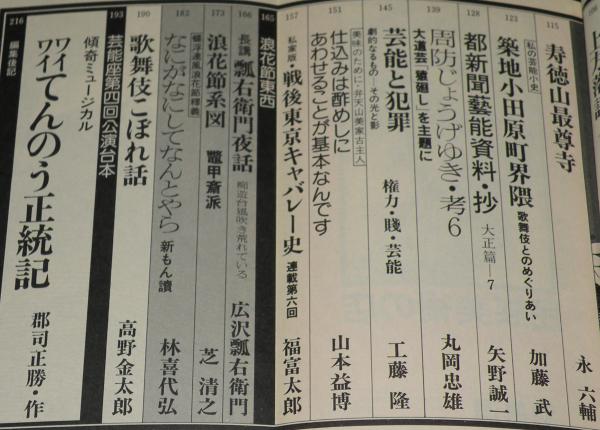 115
寿徳山最尊寺
永 六輔
123
私の芸能小史
築地小田原町界隈 歌舞伎とのめぐりあい
加藤 武
128
都新聞藝能資料・抄 大正篇―7
矢野誠一
139
周防じょうげゆき・考6
大道芸「猿廻し」を主題に
丸岡忠雄
145
劇的なるもの―その光と影
芸能と犯罪
権力・賤・芸能
工藤 隆
151
美味のために・弁天山美家古主人
仕込みは酢めしに
あわせることが基本なんです
山本益博
157
私家版・戦後東京キャバレー史 連載第六回
福富太郎
165
浪花節東西
166
長講 瓢右衛門夜話 痴遊台風吹き荒れている
広沢瓢右衛門
173
浪花節系図 鼈甲斎派
芝 清之
182
なにがなにしてなんとやら 新もん讀
林喜代弘
190
歌舞伎こぼれ話
高野金太郎
193
芸能座第四回公演台本
傾奇ミュージカル
ワイワイてんのう正統記
郡司正勝・作
216
編集後記